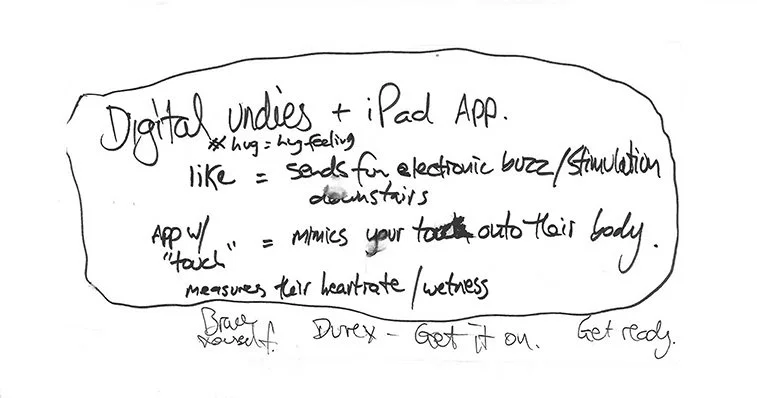 Digital undies + iPad App.
* hug = hug feeling
like = sends for electronic buzz/stimulation
downstairs
App w/
"touch" = mimics your touch onto their body.
measures their heartrate/wetness
Brace
yourself. Durex - Get it on. Get ready.